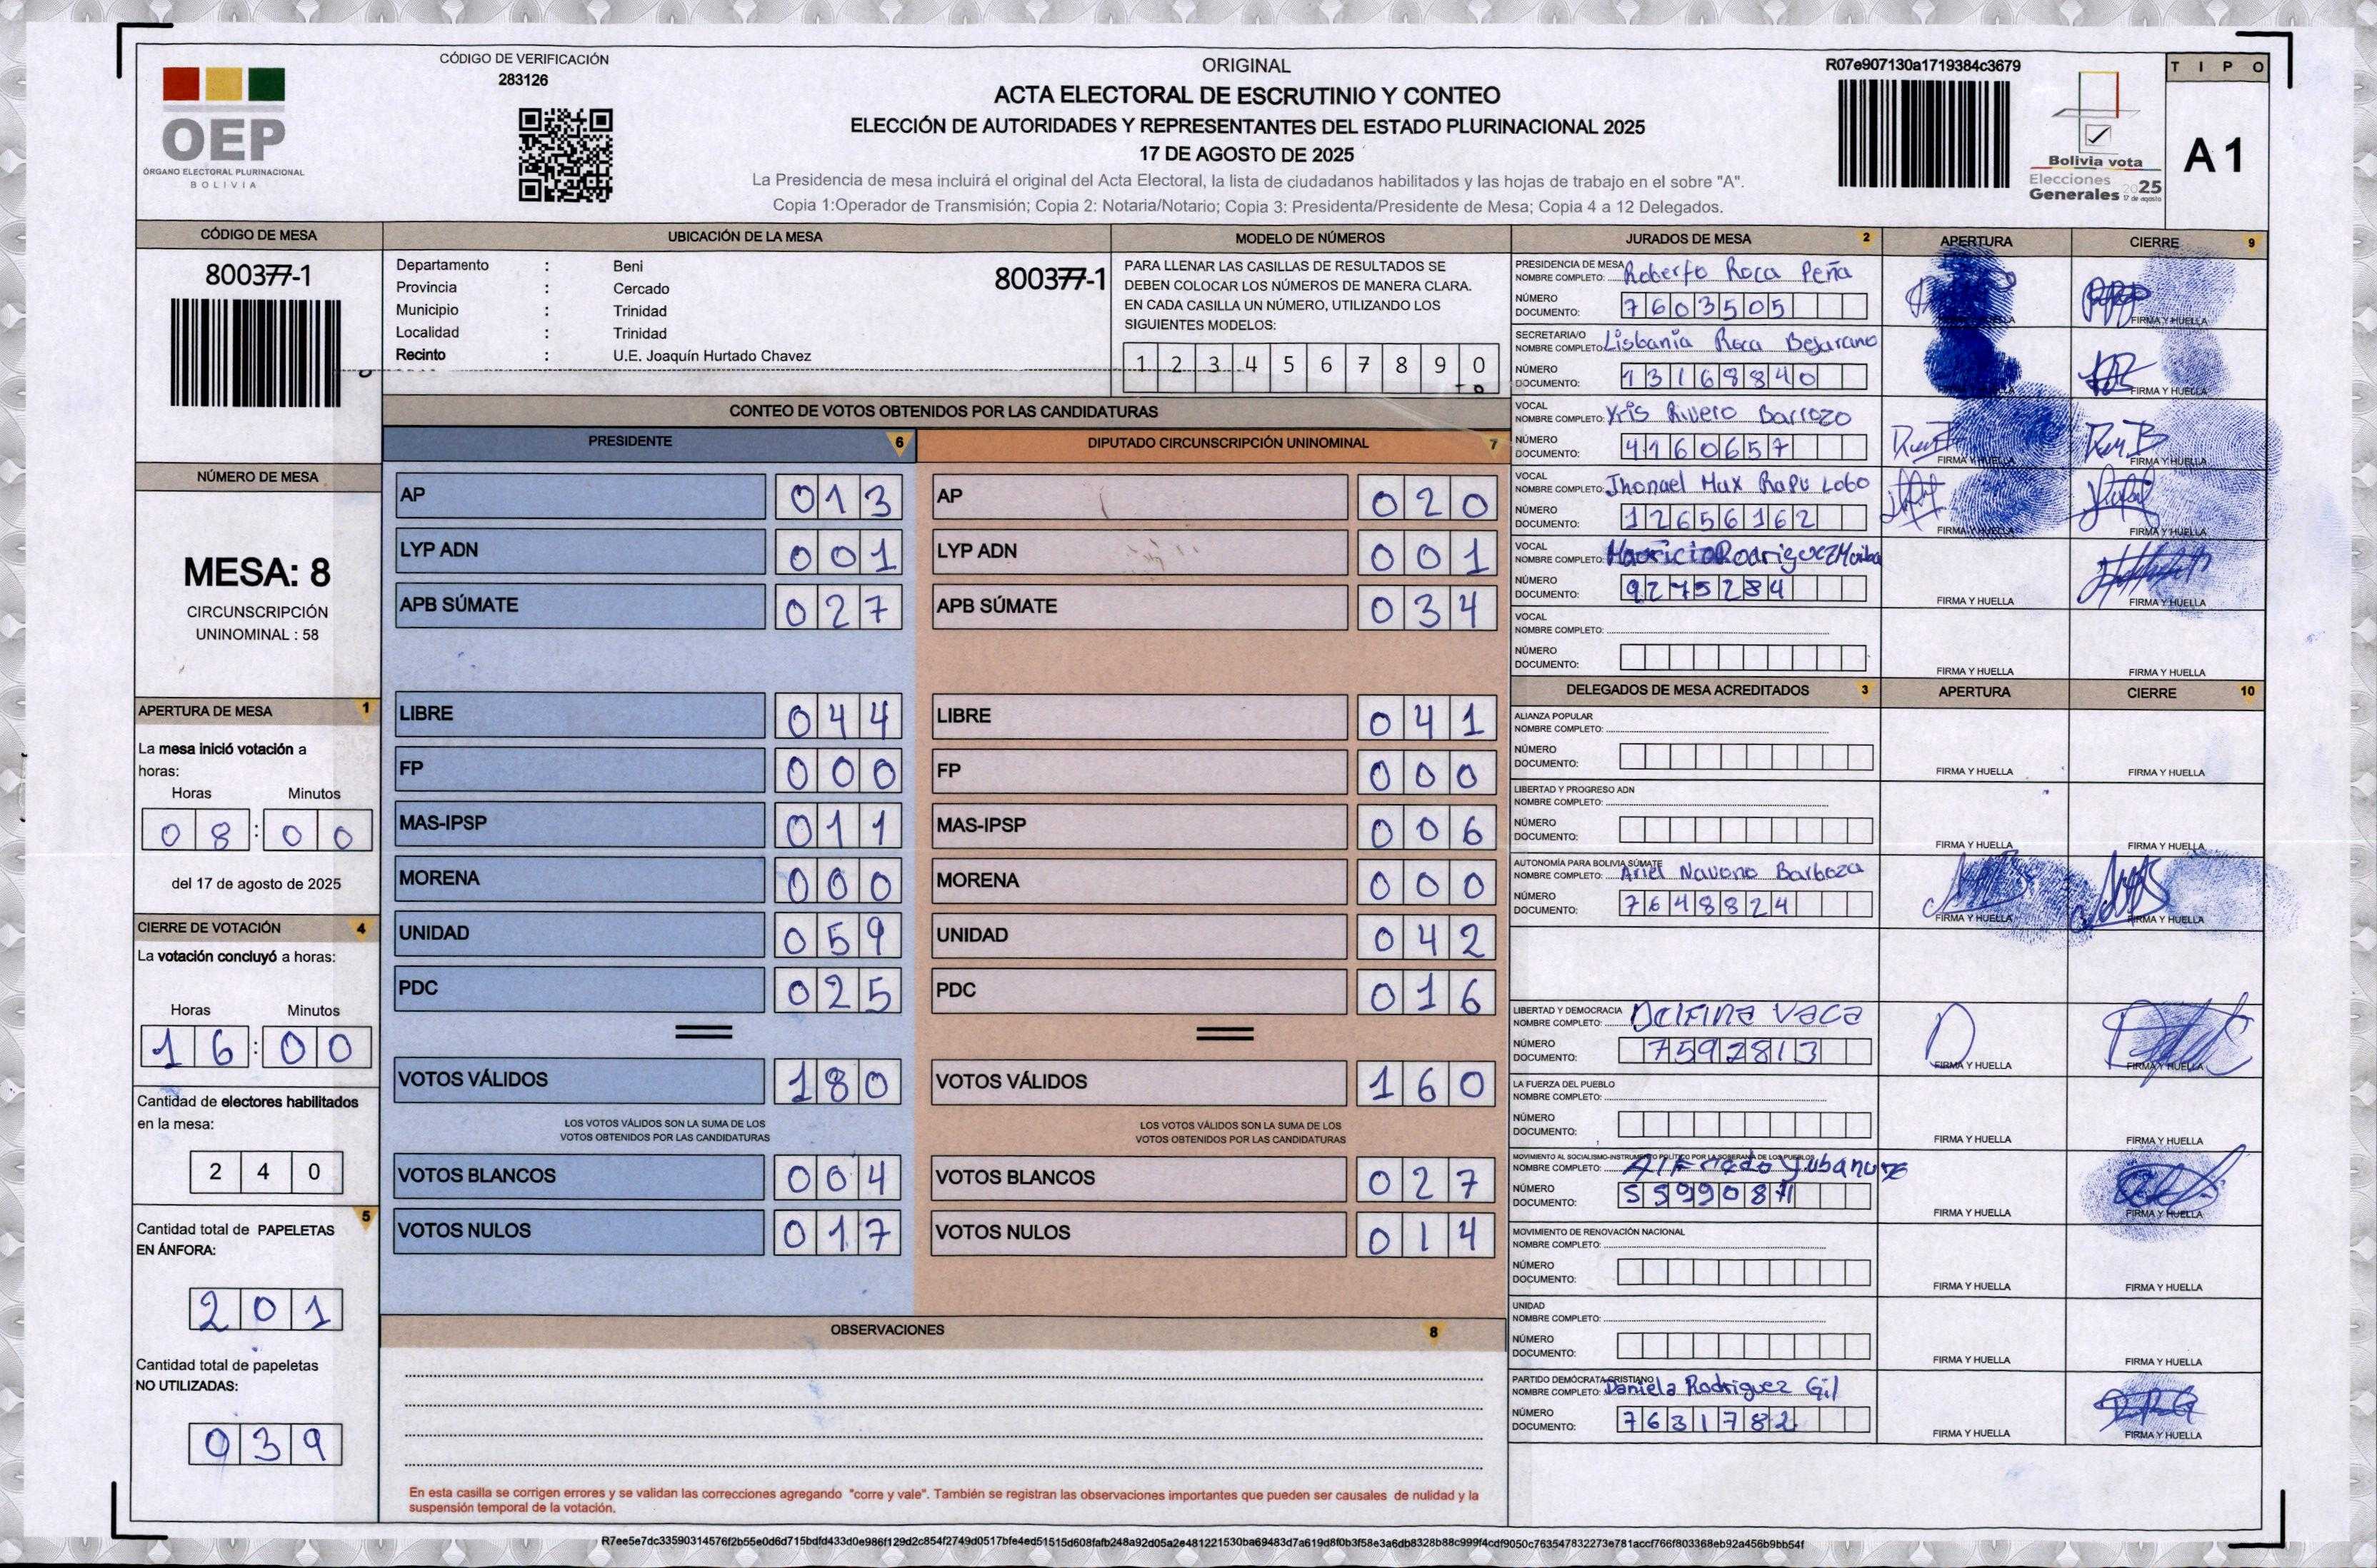 CÓDIGO DE VERIFICACIÓN
283126
OEP
ÓRGANO ELECTORAL PLURINACIONAL
BOLIVIA
ORIGINAL
ACTA ELECTORAL DE ESCRUTINIO Y CONTEO
ELECCIÓN DE AUTORIDADES Y REPRESENTANTES DEL ESTADO PLURINACIONAL 2025
17 DE AGOSTO DE 2025
La Presidencia de mesa incluirá el original del Acta Electoral, la lista de ciudadanos habilitados y las hojas de trabajo en el sobre "A".
Copia 1:Operador de Transmisión; Copia 2: Notaria/Notario; Copia 3: Presidenta/Presidente de Mesa; Copia 4 a 12 Delegados.
R07e907130a1719384c3679
Bolivia vota
Elecciones
Generales 2025
17 de agosto
TIPO
A 1
CÓDIGO DE MESA
800377-1
UBICACIÓN DE LA MESA
Departamento : Beni
Provincia : Cercado
Municipio : Trinidad
Localidad : Trinidad
Recinto : U.E. Joaquín Hurtado Chavez
800377-1
MODELO DE NÚMEROS
PARA LLENAR LAS CASILLAS DE RESULTADOS SE
DEBEN COLOCAR LOS NÚMEROS DE MANERA CLARA.
EN CADA CASILLA UN NÚMERO, UTILIZANDO LOS
SIGUIENTES MODELOS:
1 2 3 4 5 6 7 8 9 0
NÚMERO DE MESA
MESA: 8
CIRCUNSCRIPCIÓN
UNINOMINAL : 58
APERTURA DE MESA 1
La mesa inició votación a
horas:
Horas Minutos
08 : 00
del 17 de agosto de 2025
CIERRE DE VOTACIÓN 4
La votación concluyó a horas:
Horas Minutos
16 : 00
Cantidad de electores habilitados
en la mesa:
240
5
Cantidad total de PAPELETAS
EN ÁNFORA:
201
Cantidad total de papeletas
NO UTILIZADAS:
039
CONTEO DE VOTOS OBTENIDOS POR LAS CANDIDATURAS
PRESIDENTE 6
AP 013
LYP ADN 001
APB SÚMATE 027
LIBRE 044
FP 000
MAS-IPSP 011
MORENA 000
UNIDAD 059
PDC 025
VOTOS VÁLIDOS 180
LOS VOTOS VÁLIDOS SON LA SUMA DE LOS
VOTOS OBTENIDOS POR LAS CANDIDATURAS
VOTOS BLANCOS 004
VOTOS NULOS 017
DIPUTADO CIRCUNSCRIPCIÓN UNINOMINAL 7
AP 020
LYP ADN 001
APB SÚMATE 034
LIBRE 041
FP 000
MAS-IPSP 006
MORENA 000
UNIDAD 042
PDC 016
VOTOS VÁLIDOS 160
LOS VOTOS VÁLIDOS SON LA SUMA DE LOS
VOTOS OBTENIDOS POR LAS CANDIDATURAS
VOTOS BLANCOS 027
VOTOS NULOS 014
OBSERVACIONES 8
En esta casilla se corrigen errores y se validan las correcciones agregando "corre y vale". También se registran las observaciones importantes que pueden ser causales de nulidad y la
suspensión temporal de la votación.
JURADOS DE MESA 2 APERTURA CIERRE 9
PRESIDENCIA DE MESA
NOMBRE COMPLETO: Roberto Roca Peña
NÚMERO
DOCUMENTO: 7603505
FIRMA Y HUELLA FIRMA Y HUELLA
SECRETARIA/O
NOMBRE COMPLETO: Lisbania Roca Bejarano
NÚMERO
DOCUMENTO: 13168840
FIRMA Y HUELLA FIRMA Y HUELLA
VOCAL
NOMBRE COMPLETO: Yris Rivero Barrozo
NÚMERO
DOCUMENTO: 4160657
FIRMA Y HUELLA FIRMA Y HUELLA
VOCAL
NOMBRE COMPLETO: Jhonael Max Rapu Lobo
NÚMERO
DOCUMENTO: 12656162
FIRMA Y HUELLA FIRMA Y HUELLA
VOCAL
NOMBRE COMPLETO: Mauricio Rodriguez
NÚMERO
DOCUMENTO: 9275284
FIRMA Y HUELLA FIRMA Y HUELLA
VOCAL
NOMBRE COMPLETO:
NÚMERO
DOCUMENTO:
FIRMA Y HUELLA FIRMA Y HUELLA
DELEGADOS DE MESA ACREDITADOS 3 APERTURA CIERRE 10
ALIANZA POPULAR
NOMBRE COMPLETO:
NÚMERO
DOCUMENTO:
FIRMA Y HUELLA FIRMA Y HUELLA
LIBERTAD Y PROGRESO ADN
NOMBRE COMPLETO:
NÚMERO
DOCUMENTO:
FIRMA Y HUELLA FIRMA Y HUELLA
AUTONOMÍA PARA BOLIVIA SÚMATE
NOMBRE COMPLETO: Ariel Navono Barboza
NÚMERO
DOCUMENTO: 7648824
FIRMA Y HUELLA FIRMA Y HUELLA
LIBERTAD Y DEMOCRACIA
NOMBRE COMPLETO: Delfina Vaca
NÚMERO
DOCUMENTO: 7592813
FIRMA Y HUELLA FIRMA Y HUELLA
LA FUERZA DEL PUEBLO
NOMBRE COMPLETO:
NÚMERO
DOCUMENTO:
FIRMA Y HUELLA FIRMA Y HUELLA
MOVIMIENTO AL SOCIALISMO-INSTRUMENTO POLÍTICO POR LA SOBERANÍA DE LOS PUEBLOS
NOMBRE COMPLETO:
NÚMERO
DOCUMENTO:
FIRMA Y HUELLA FIRMA Y HUELLA
MOVIMIENTO DE RENOVACIÓN NACIONAL
NOMBRE COMPLETO:
NÚMERO
DOCUMENTO:
FIRMA Y HUELLA FIRMA Y HUELLA
UNIDAD
NOMBRE COMPLETO:
NÚMERO
DOCUMENTO:
FIRMA Y HUELLA FIRMA Y HUELLA
PARTIDO DEMÓCRATA CRISTIANO
NOMBRE COMPLETO: Daniela Rodriguez Gil
NÚMERO
DOCUMENTO: 7631782
FIRMA Y HUELLA FIRMA Y HUELLA